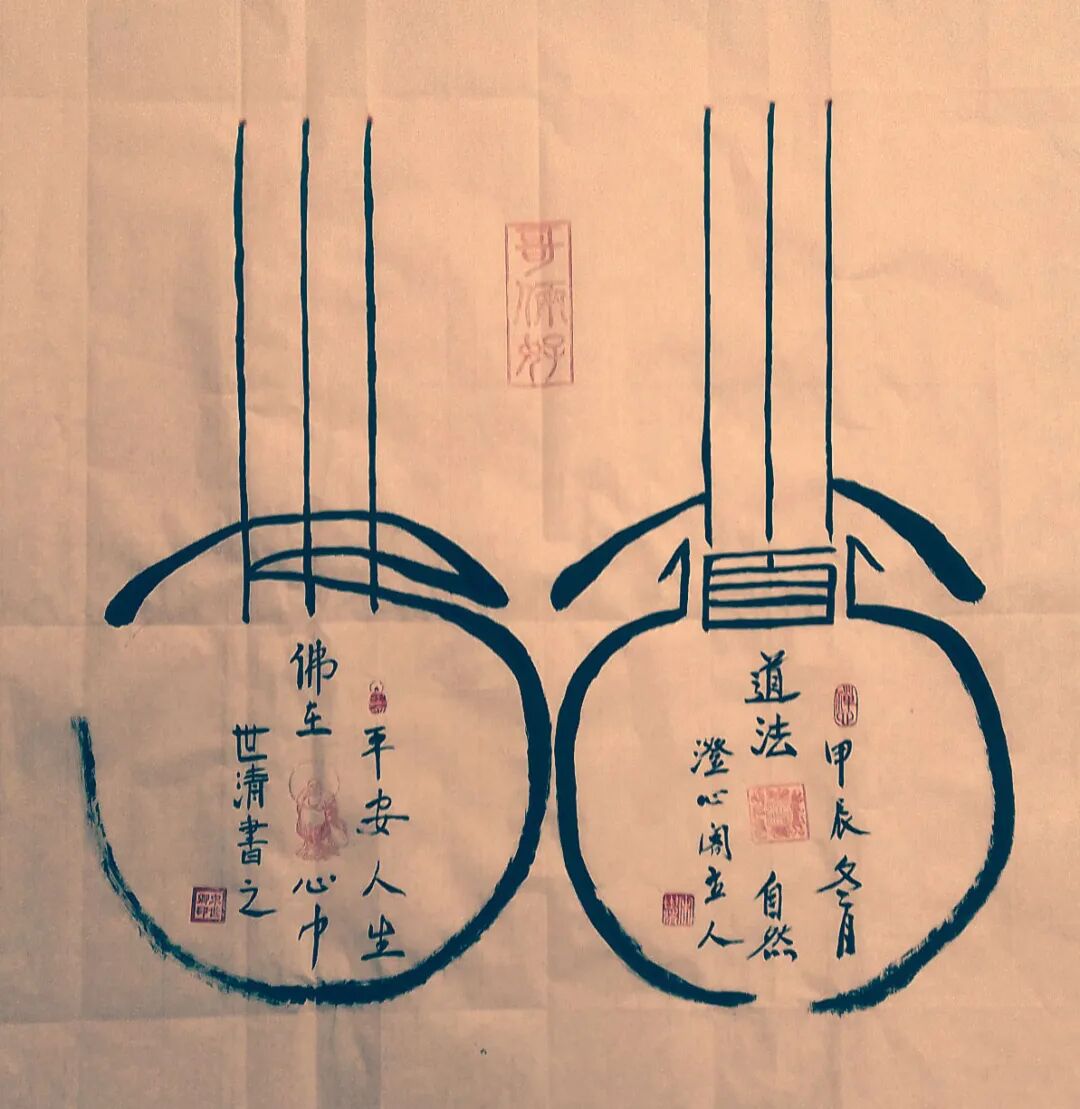 哥俩好
甲辰冬月
道法自然
澄心阁主人
平安人生
佛在心中
世清書之